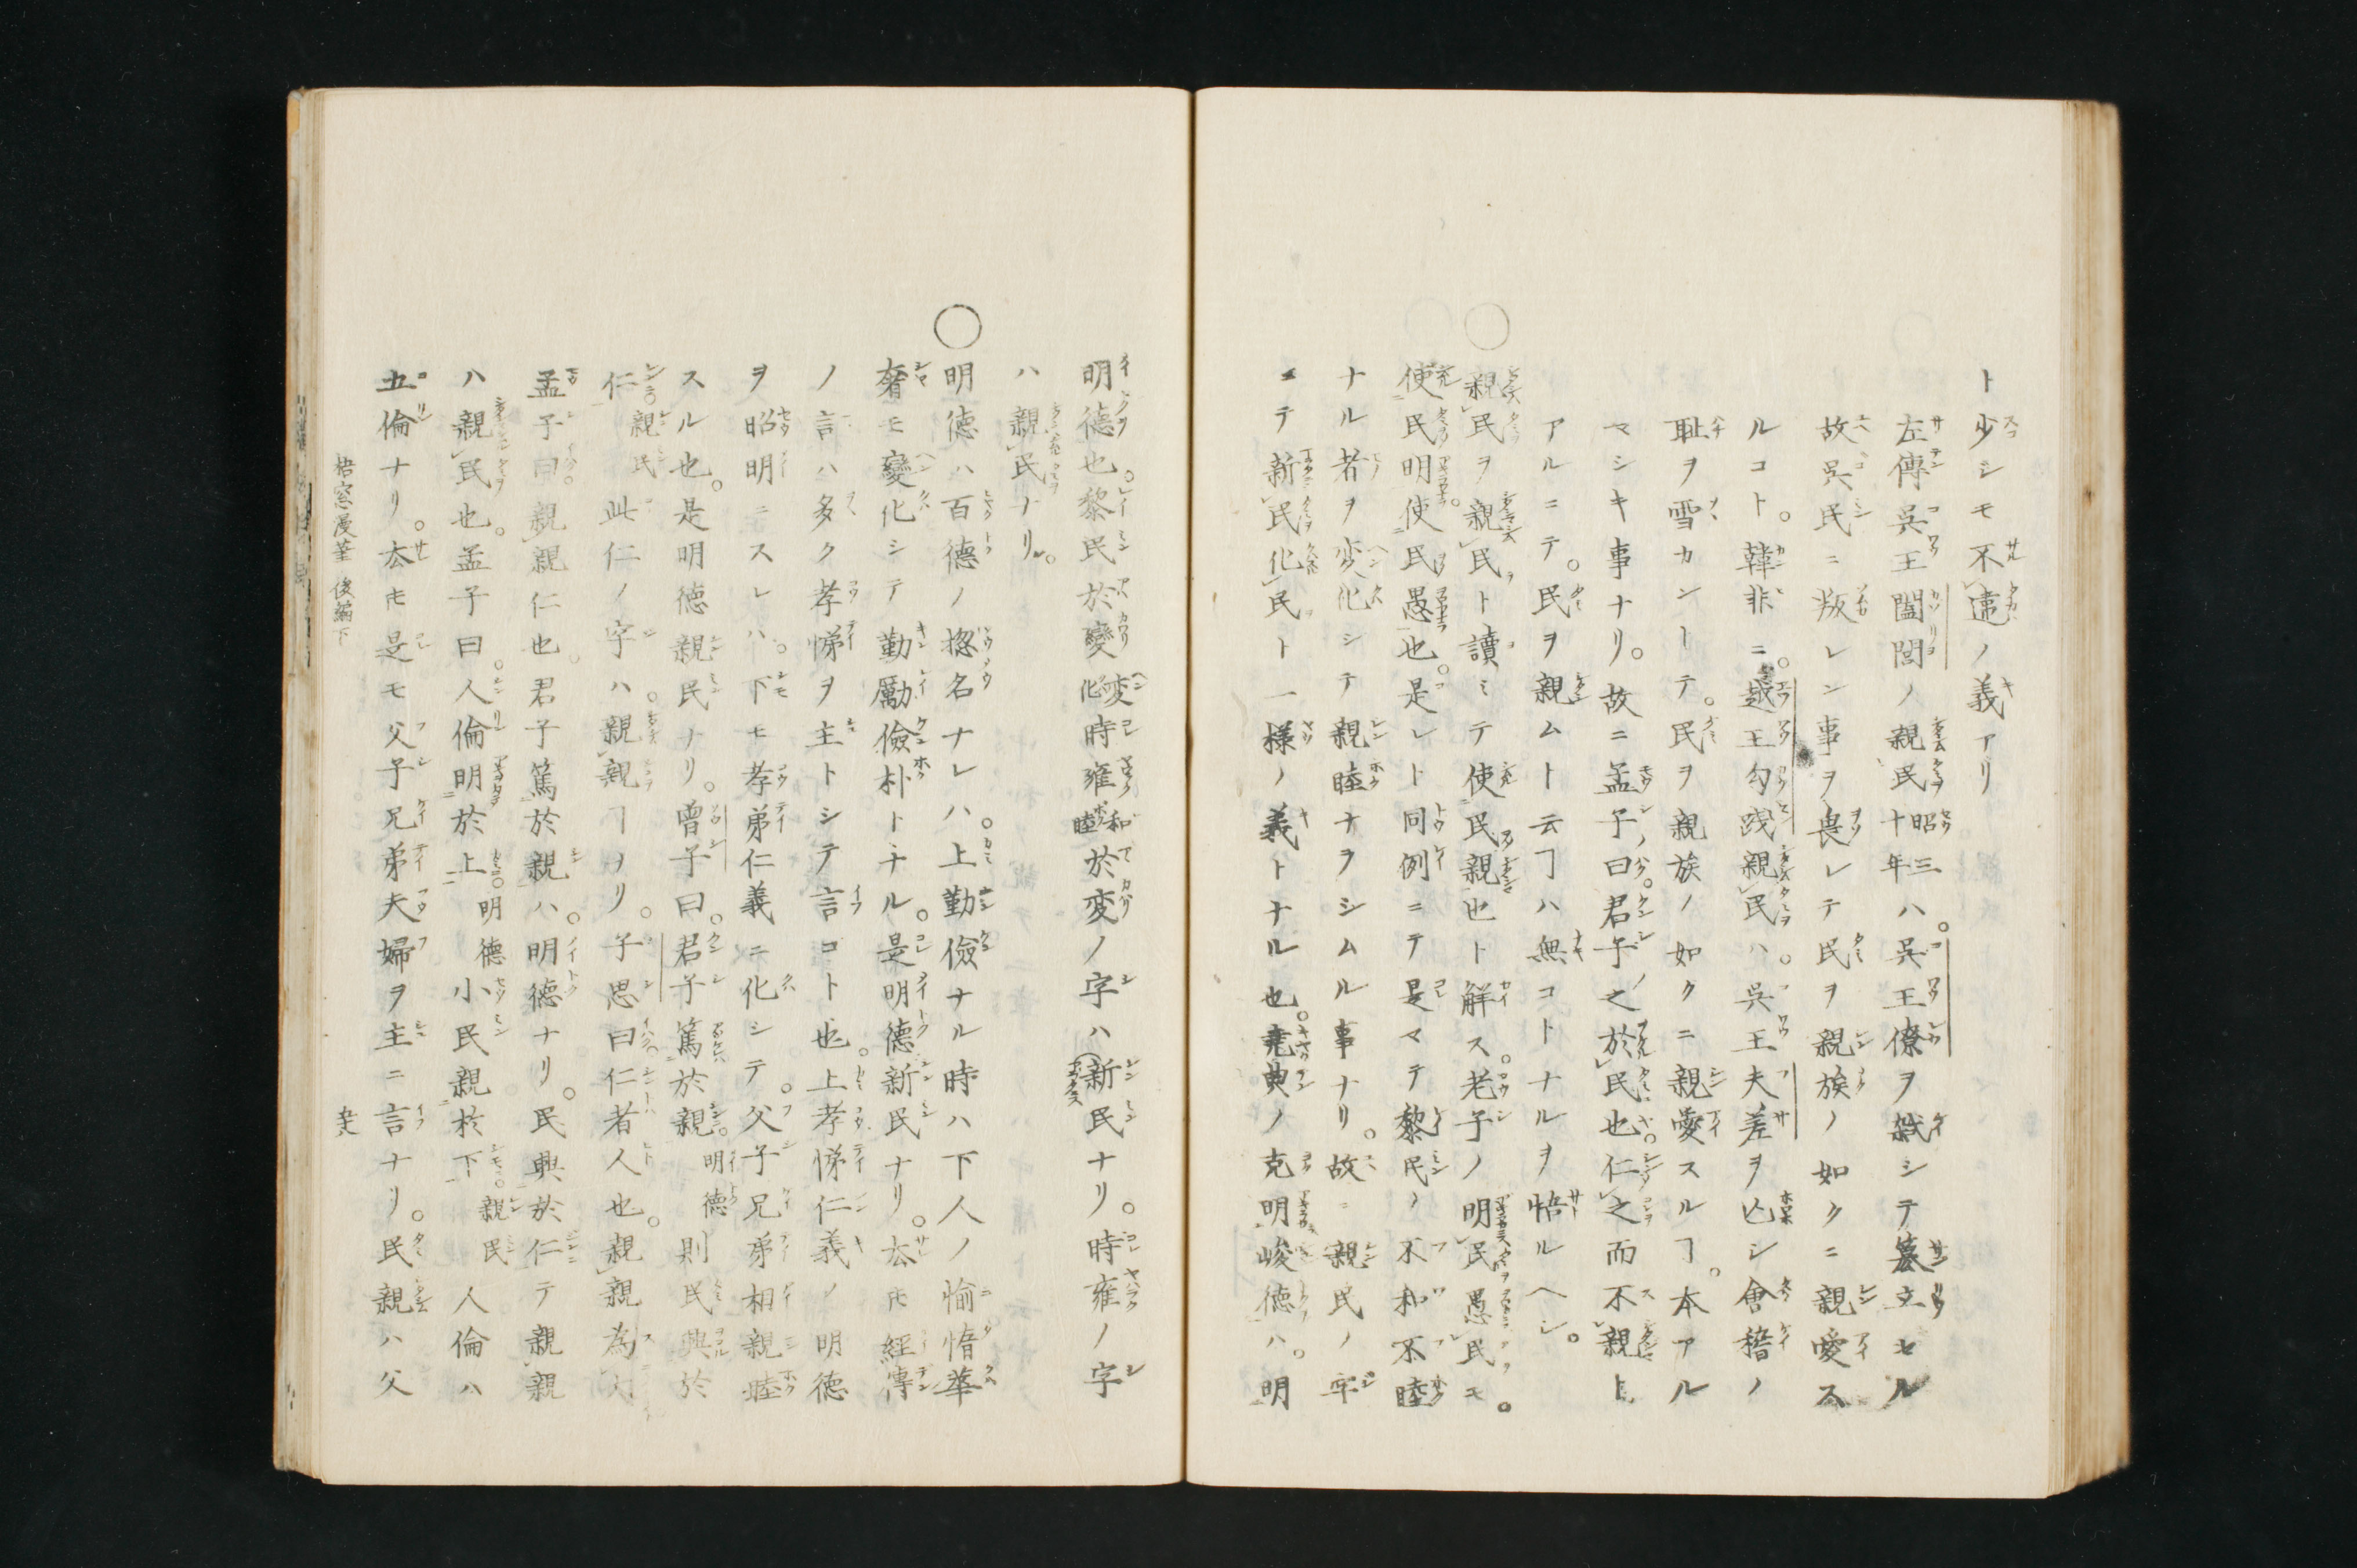 ト少シモ不違ノ義アリ
左傳呉王闔閭ノ親民昭三十年ハ。呉王僚ヲ弑シテ簒立セル
故呉民ニ叛レン事ヲ畏レテ民ヲ親族ノ如クニ親愛ス
ルコト。韓非ニ。越王勾践親民ハ。呉王夫差ヲ亾シ會稽ノ
耻ヲ雪カントテ。民ヲ親族ノ如クニ親愛スルヿ。本アル
マシキ事ナリ。故ニ孟子曰君子之於民也。仁之而不親ト
アルニテ。民ヲ親ムト云ヿハ無コトナルヲ悟ルヘシ。
○親民ヲ親民ト讀ミテ使民親也ト解ス。老子ノ明民愚民モ。
使民明。使民愚也。是レト同例ニテ是マテ黎民ノ不和不睦
ナル者ヲ変化シテ親睦ナヲシムル事ナリ。故ニ親民ノ字
ニテ新民化民ト一様ノ義トナル也。堯典ノ克明峻德ハ。明
明德也。黎民於變変化時雍和睦於変ノ字ハ新民ナリ。時雍ノ字
ハ親民ナリ。
○明德ハ百德ノ揔名ナレハ。上勤儉ナル時ハ下人ノ愉惰華
奢モ變化シテ勤勵儉朴トナル。是明德新民ナリ。𠫤𪜈經傳
ノ言ハ多ク孝悌ヲ主トシテ言コト也。上孝悌仁義ノ明德
ヲ昭明ニスレハ。下モ孝弟仁義ニ化シテ。父子兄弟相親睦
スル也。是明德親民ナリ。曾子曰。君子篤於親。明德則民興於
仁。親民此仁ノ字ハ。親親ヿナリ。子思曰仁者人也。親親為大
孟子曰。親親仁也。君子篤於親ハ。明德ナリ。民興於仁テ親親
ハ親民也。孟子曰。人倫明於上。明德小民親於下。親民人倫ハ
五倫ナリ。𠫤𪜈是モ父子兄弟夫婦ヲ主ニ言ナリ。民親ハ父
梧窓漫筆 後編下